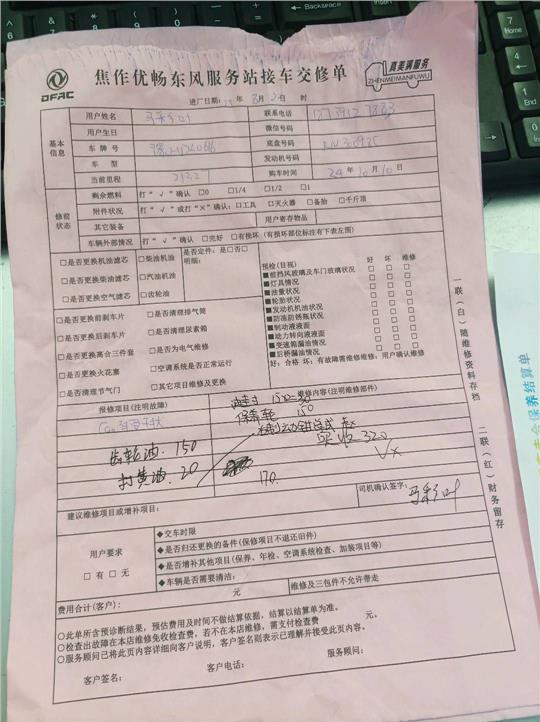 DFAC
焦作优畅东风服务站接车交修单
真美满服务
ZHENMEIMANFUWU
进厂日期: 年 8月2日 时
基本信息
用户姓名 马彩叶 联系电话
用户生日 微信号码
车牌号 底盘号码
车型 发动机号码
当前里程 2122 购车时间 24年10月10日
修前状态
剩余燃料 打“√”确认 □0 □1/4 □1/2 □1
附件状况 打“√”或打“×”确认：□工具 □灭火器 □备胎 □千斤顶
其它装备 用户寄存物品
车辆外部情况 打“√”确认 □完好 □有损坏（有损坏部位标注有下表左图）
□是否更换机油滤芯 □柴油机油 是否定件：是□否□
□是否更换柴油滤芯 □汽油机油 明细：
□是否更换空气滤芯 □齿轮油
□是否更换前刹车片 □是否清理排气筒
□是否更换后刹车片 □是否清理尿素箱
□是否更换离合三件套 □是否为电气维修
□是否更换火花塞 □空调系统是否正常运行
□是否清理节气门 □其它项目维修及更换
预检(目视) 好 坏 维修
■前挡风玻璃及车门玻璃状况 □ □ □
■灯具情况 □ □ □
■油量状况 □ □ □
■轮胎状况 □ □ □
■发动机机油状况 □ □ □
■防冻防锈瓶状况 □ □ □
■制动液液面 □ □ □
■动力转向液液面 □ □ □
■变速箱漏油情况 □ □ □
■后桥漏油情况 □ □ □
好；合格 坏：有故障需维修维修：用户确认维修
报修项目(注明故障) 维修内容(注明维修部件)
保养 150
实收 320
齿轮油. 150
打黄油. 20
170.
建议维修项目或增补项目：
司机确认签字： 马彩叶
用户要求
□有 □无
◆交车时限
◆是否归还更换的备件(保修项目不退还旧件)
◆是否增补其他项目(保养、年检、空调系统检查、加装项目等)
◆车辆是否需要清洁：
费用合计(客户)： 元 维修及三包件不允许带走
○此单所含预诊断结果，预估费用及时间不做结算依据，结算以结算单为准。
○检查出故障在本店维修免收检查费，若不在本店维修，需支付检查费 元。
○服务顾问已将此页内容详细向客户说明，客户签名则表示已理解并接受此页内容。
客户签名： 客户电话： 服务顾问：
一联（白）随维修资料存档
二联（红）财务留存
保养结算单